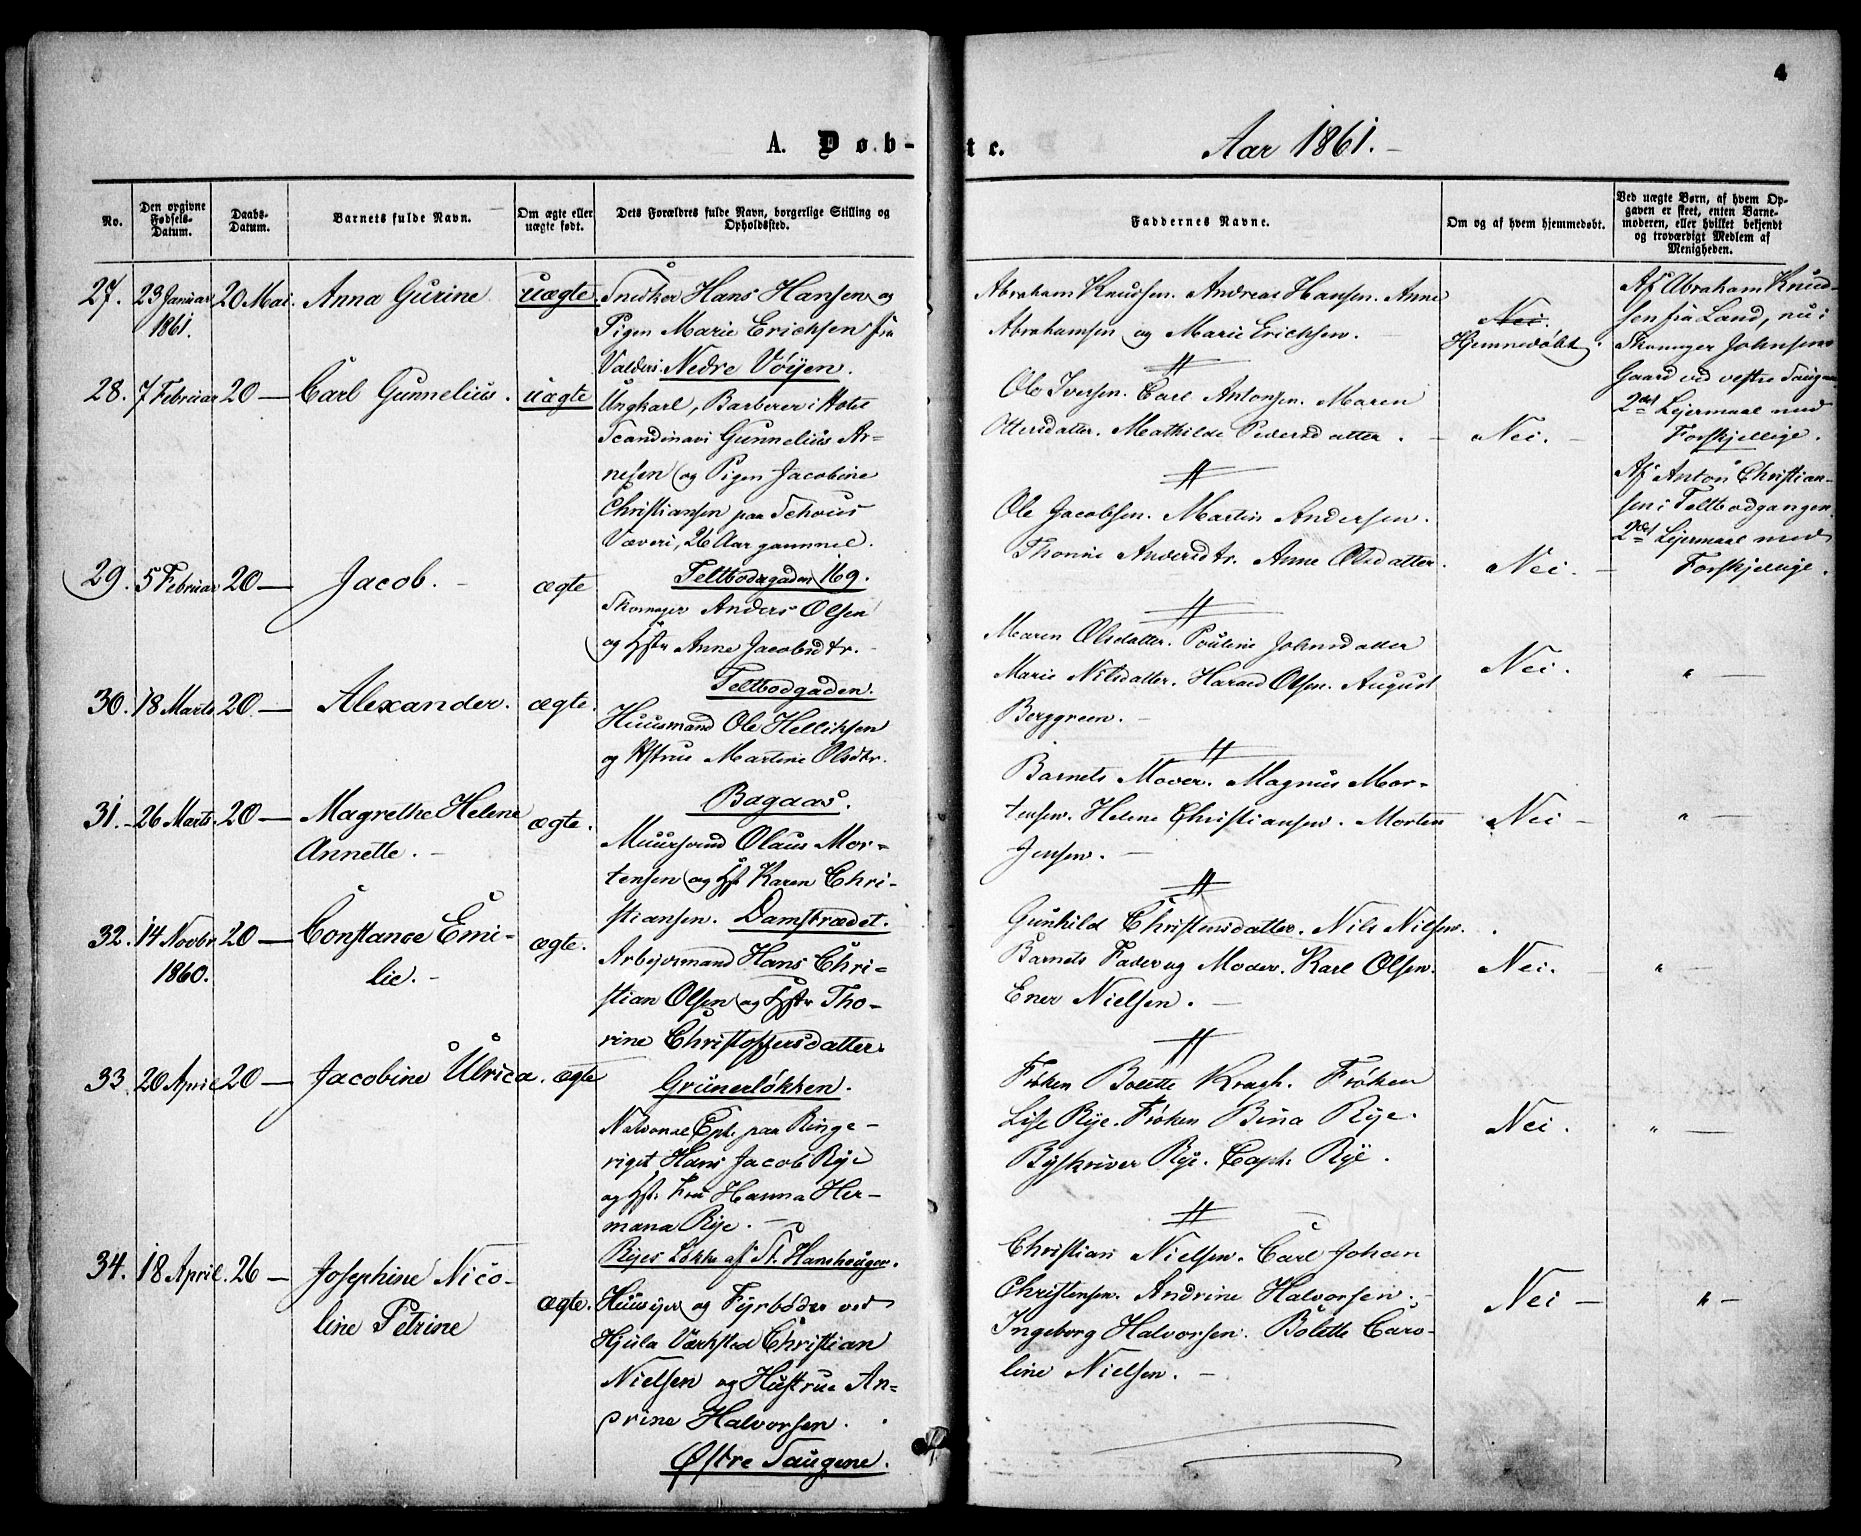 4
A. Døb-
te.
Aar 1861.
No.
Den opgivne Fødsels-Datum.
Daabs-Datum.
Barnets fulde Navn.
Om ægte eller uægte født.
Dets Forældres fulde Navn, borgerlige Stilling og Opholdssted.
Faddernes Navne.
Om og af hvem hjemmedøbt.
Ved uægte Børn, af hvem Opgaven er skeet, enten Barnemoderen, eller hvilket bekjendt og troværdigt Medlem af Menigheden.
27. 23 Januar 1861. 20 Mai. Anna Gurine uægte.
Snedker Hans Hansen og
Pigen Marie Erichsen fra
Valders. Nedre Vøyen.
Abraham Knudsen. Andreas Hansen. Anne
Abrahamsen og Marie Erichsen.
Nei.
Hjemmedøbt.
Af Abraham Knud-
sen fra Land, nu i
Skomager Johnsens
Gaard ved vestre Saugene
2det Lejermaal med
Forskjellige.
28. 7 Februar 20 — Carl Gunnelius. uægte
Ungkarl, Barberer i Hotel
Scandinavi Gunnelius Ar-
nesen og Pigen Jacobine
Christiansen paa Schous
Væveri, 26 Aar gammel.
Teltbodgaden 169.
Ole Iversen. Carl Antonsen. Maren
Ottersdatter. Mathilde Pedersdatter.
Nei.
Af Anton Christian-
sen i Teltbodgangen.
2det Lejermaal med
Forskjellige.
29. 5 Februar 20 — Jacob. ægte
Skomager Anders Olsen
og Hstr Anne Jacobsdtr.
Teltbodgaden.
Ole Jacobsen. Martin Andersen.
Thonne Andersdtr. Anne Olsdatter.
Nei.
30. 18 Marts 20 — Alexander. ægte.
Huusmand Ole Helliksen
og Hstru Martine Olsdtr.
Bagaas.
Maren Olsdatter. Pouline Johnsdatter
Marie Nilsdatter. Harald Olsen. August
Berggreen.
Nei. " —
31. 26 Marts. 20 — Magrethe Helene
Annette. ægte.
Muursvend Olaus Mor-
tensen og Hst Karen Chri-
stiansen. Damstrædet.
Barnets Moder. Magnus Mor-
tensen. Helene Christiansen. Morten
Jensen.
Nei — " —
32. 14 Novbr 1860. 20 — Constance Emi-
lie. ægte.
Arbejdsmand Hans Chri-
stian Olsen og Hstr Tho-
rine Christoffersdatter.
Grünerløkken.
Gunhild Christensdatter. Nils Nilsen.
Barnets Fader og Moder. Karl Olsen.
Ener Nielsen.
Nei. " —
33. 20 April 20 — Jacobine Ulrica. ægte
National Cpt. paa Ringe-
riget Hans Jacob Rye
og Hst. Fru Hanna Her-
mana Rye.
Ryes Løkke af St. Hanshouger.
Frøken Bolette Kragh. Frøken
Lise Rye. Frøken Bina Rye.
Byskriver Rye. Capt. Rye.
Nei. " —
34. 18 April. 26 — Josephine Nico-
line Petrine ægte.
Huusejer og Fyrbøder ved
Hjula Værksted Christian
Nielsen og Hustrue An-
drine Halvorsen.
Østre Saugene.
Christian Nielsen. Carl Johan
Christensen. Andrine Halvorsen.
Ingeborg Halvorsen. Bolette Caro-
line Nielsen.
Nei — " —